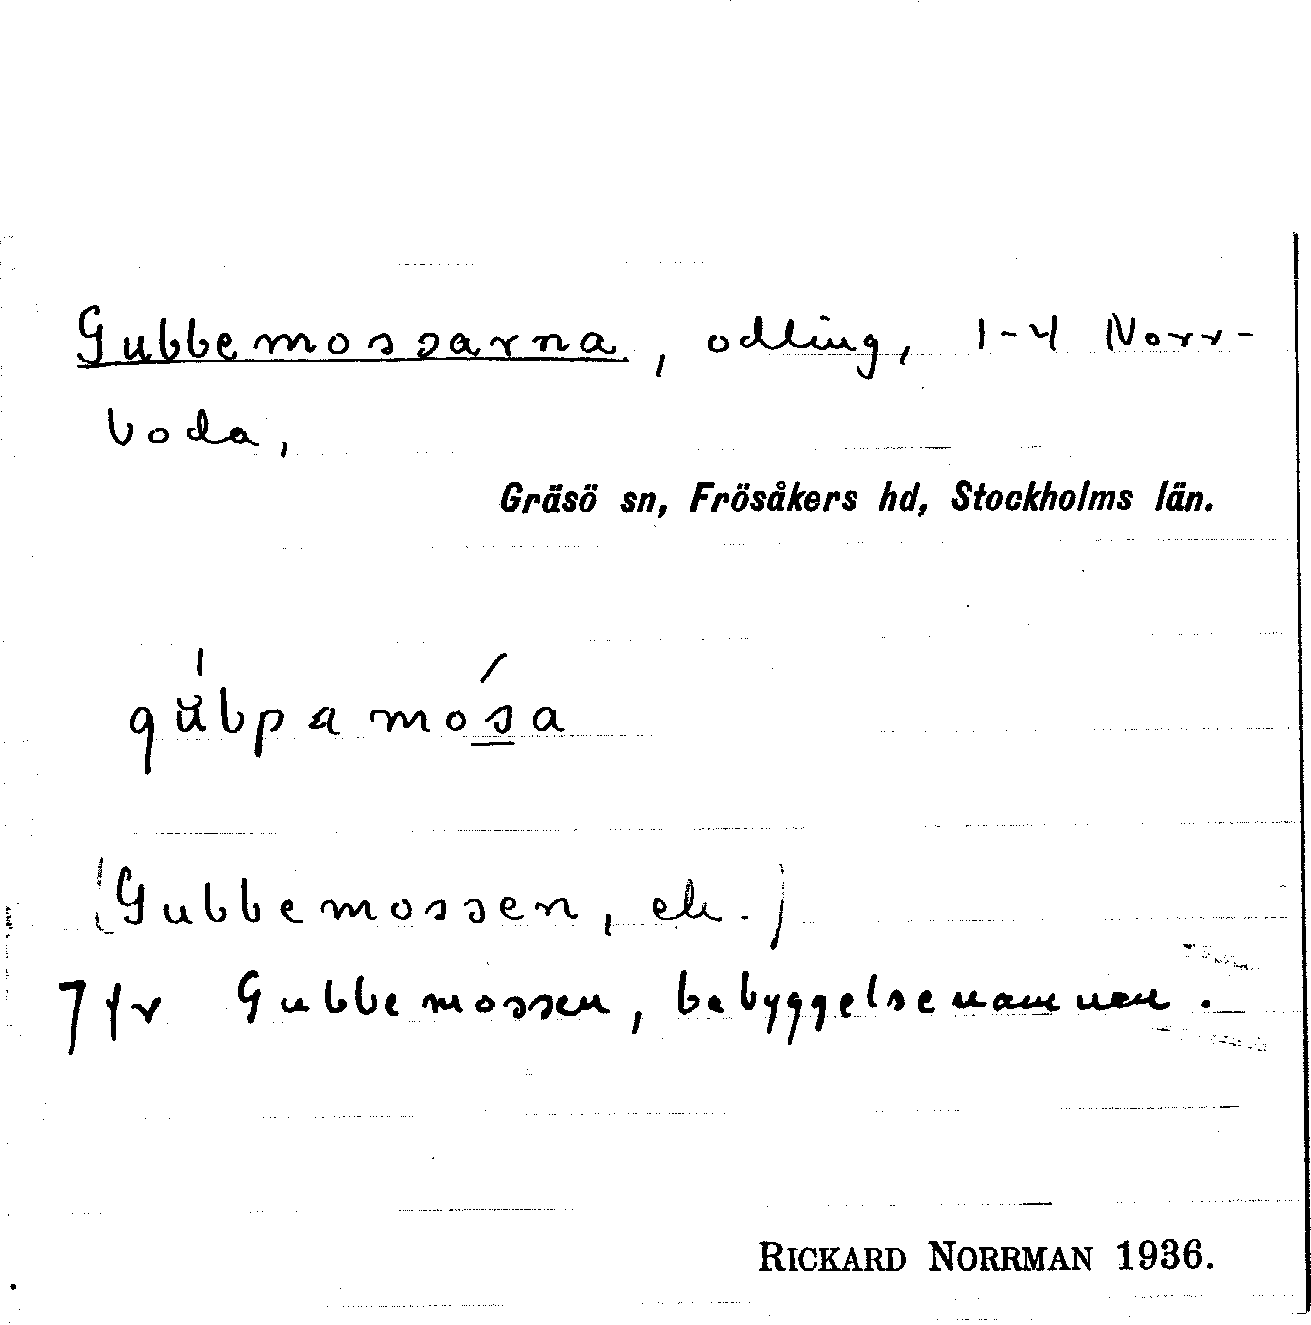 Gubbemossarna, odling, 1-4 Norr-
boda,
Gräsö sn, Frösåkers hd, Stockholms län.
(Gubbemossen, ek.)
Jfr Gubbemossen, bebyggelsenamnen.
RICKARD NORRMAN 1936.